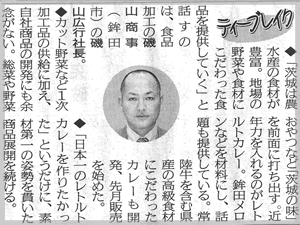 ティーブレイク
◆「茨城は農
水産の食材が
豊富。地場の
野菜や食材に
こだわった食
品を提供していく」と
話すの
は、食品
加工の磯
山商事
(鉾田
市)の磯
山広行社長。
◆カット野菜など1次
加工品の供給に加え、
自社商品の開発にも余
念がない。総菜や野菜
おやつなど「茨城の味」
を前面に打ち出す。近
年力を入れるのがレト
ルトカレー。鉾田メロ
ンなどを材料にし、話
題も提供している。常
陸牛を含む県
産の高級食材
にこだわった
カレーも開
発、先月販売
を始めた。
◆「日本一のレトルト
カレーを作りたかっ
た」というだけに、素
材第一の姿勢を貫いた
商品展開を続ける。